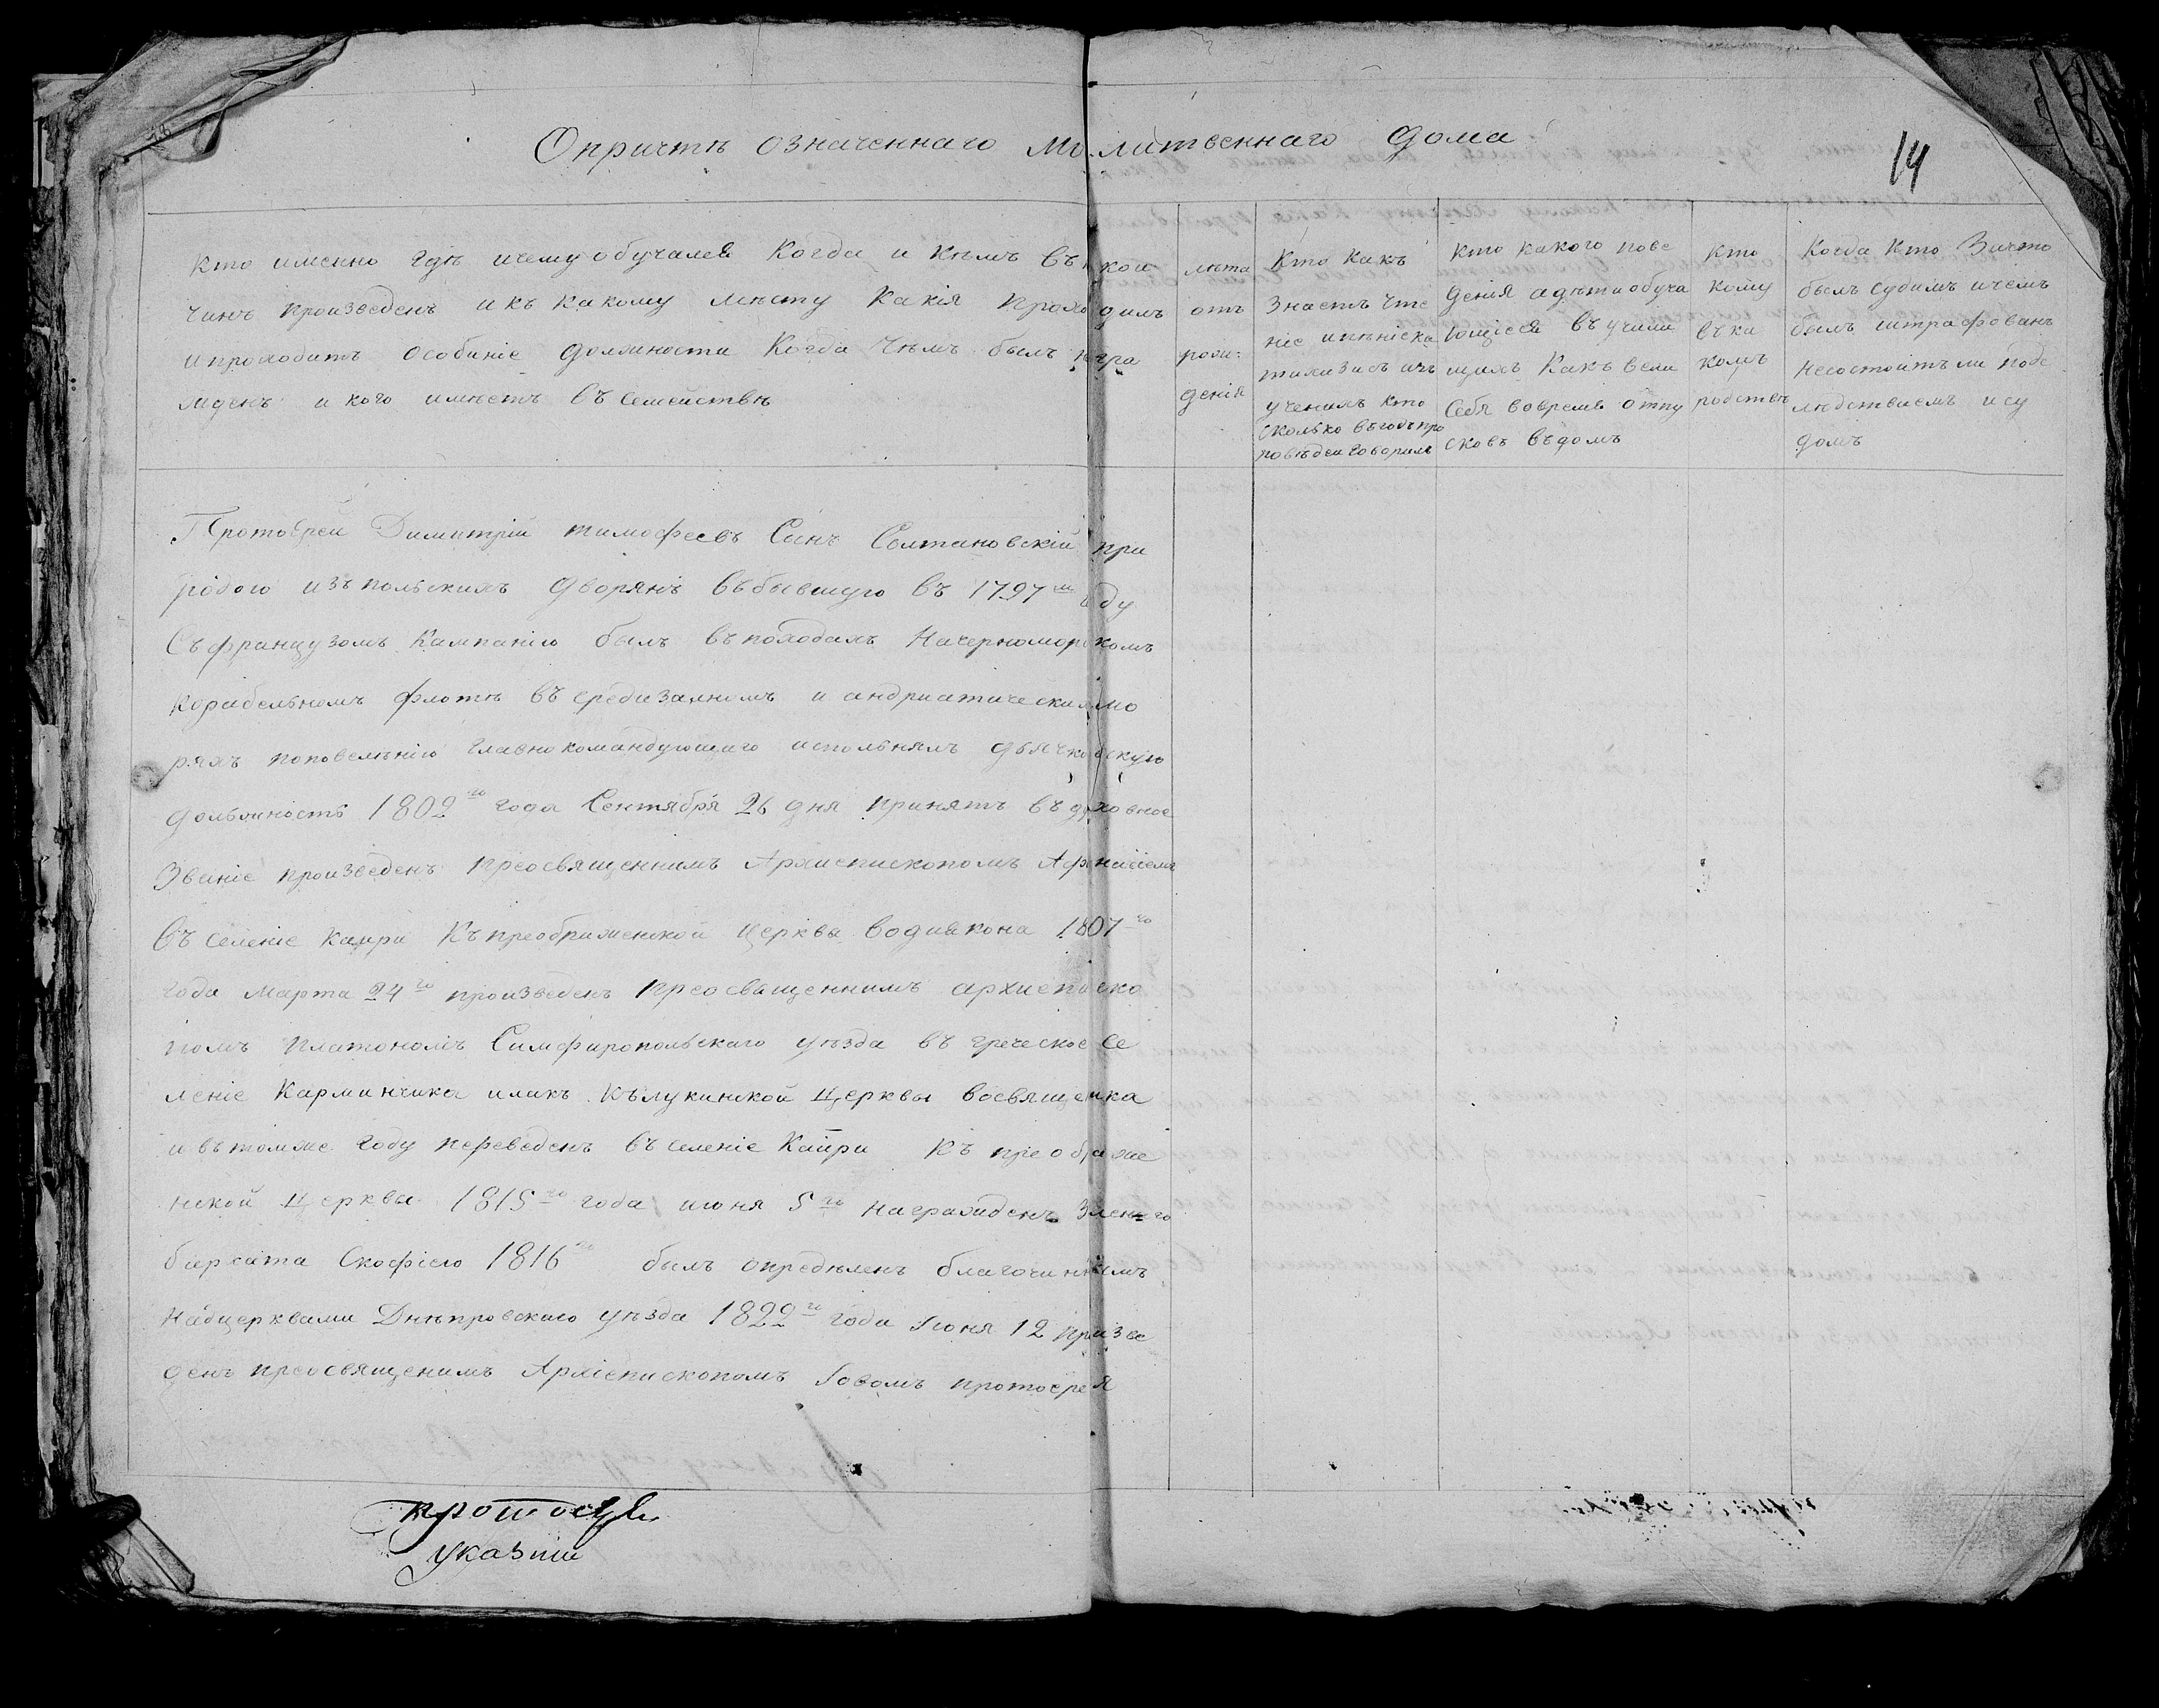 Опричтѣ означеннаго молитвеннаго дома
14
Кто именно гдѣ ичему обучался Когда и кѣмъ въ кои
чинъ произведенъ икъ какому мѣсту Какія проходилъ
ипроходитъ особиніе должности Когда Чѣмъ былъ награ
жденъ и кого имѣетъ въ семействѣ
лѣта
отъ
рожи:
денія
Кто какъ
знаетъ Чте
ніе ипѣніе ка
тихизисъ ичь
ученихъ кто
сколько въгодъ про
повѣдеи говорилъ
Кто какого пове
денія адѣти обуча
ющіеся въ учили
щахъ Какъ вели
себя вовремя отпу
сковъ въдомъ
Кто
кому
въ ка
комъ
родствѣ
Когда Кто За что
былъ судимъ ичемъ
былъ штрафованъ
несостоитъли подс
лѣдствиемъ и су
домъ
Протоіерей Димитрій тимофеевъ Сынъ Солтановскій при
родою изъ польскихъ дворянъ въбывшую въ 1797м году
Съ французомъ Кампанію былъ въ походахъ Начерноморскомъ
корабельномъ флотѣ въ средизаиномъ и андриатическихъ мо
ряхъ поповелѣнію главнокомандующаго исполнялъ дьячковскую
дольжность 1802го года Сентября 26 дня принятъ въ духовное
Званіе произведенъ преосвященнимъ Архиепископомъ Афанасіемъ
въ селеніе каири Къ преображенской церква водиякона 1807го
года марта 24го произведенъ преосвященнимъ архиеписко
помъ платономъ Симфиропольскаго уѣзда въ греческое се
леніе Карминчика къ лукинской церквы восвященика
и въ томже году переведенъ въ селеніе Каири къ преображе
нской церква 1815го года июня 5го награжденъ
Скофіею 1816го былъ опредѣленъ благочиннимъ
Надцерквами Днѣпровскаго уѣзда 1822го года Іюня 12 призве
денъ преосвященимъ Архіепископомъ Іовомъ протоерея